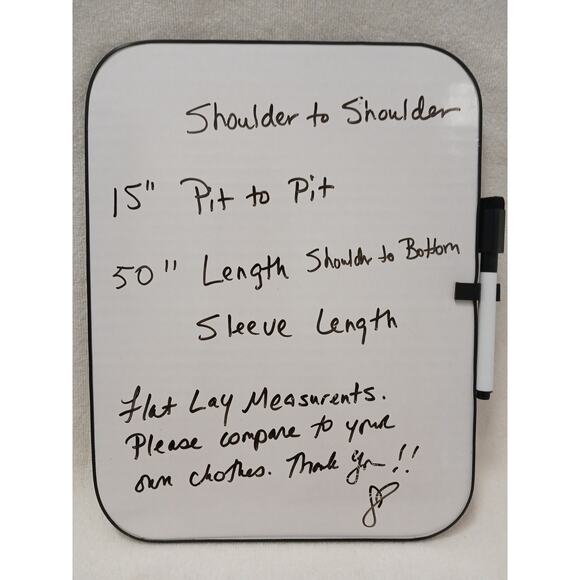 Shoulder to Shoulder
15" Pit to Pit
50" Length Shouldr to Bottom
Sleeve Length
Flat Lay Measurents.
Please compare to your
own clothes. Thank you!!